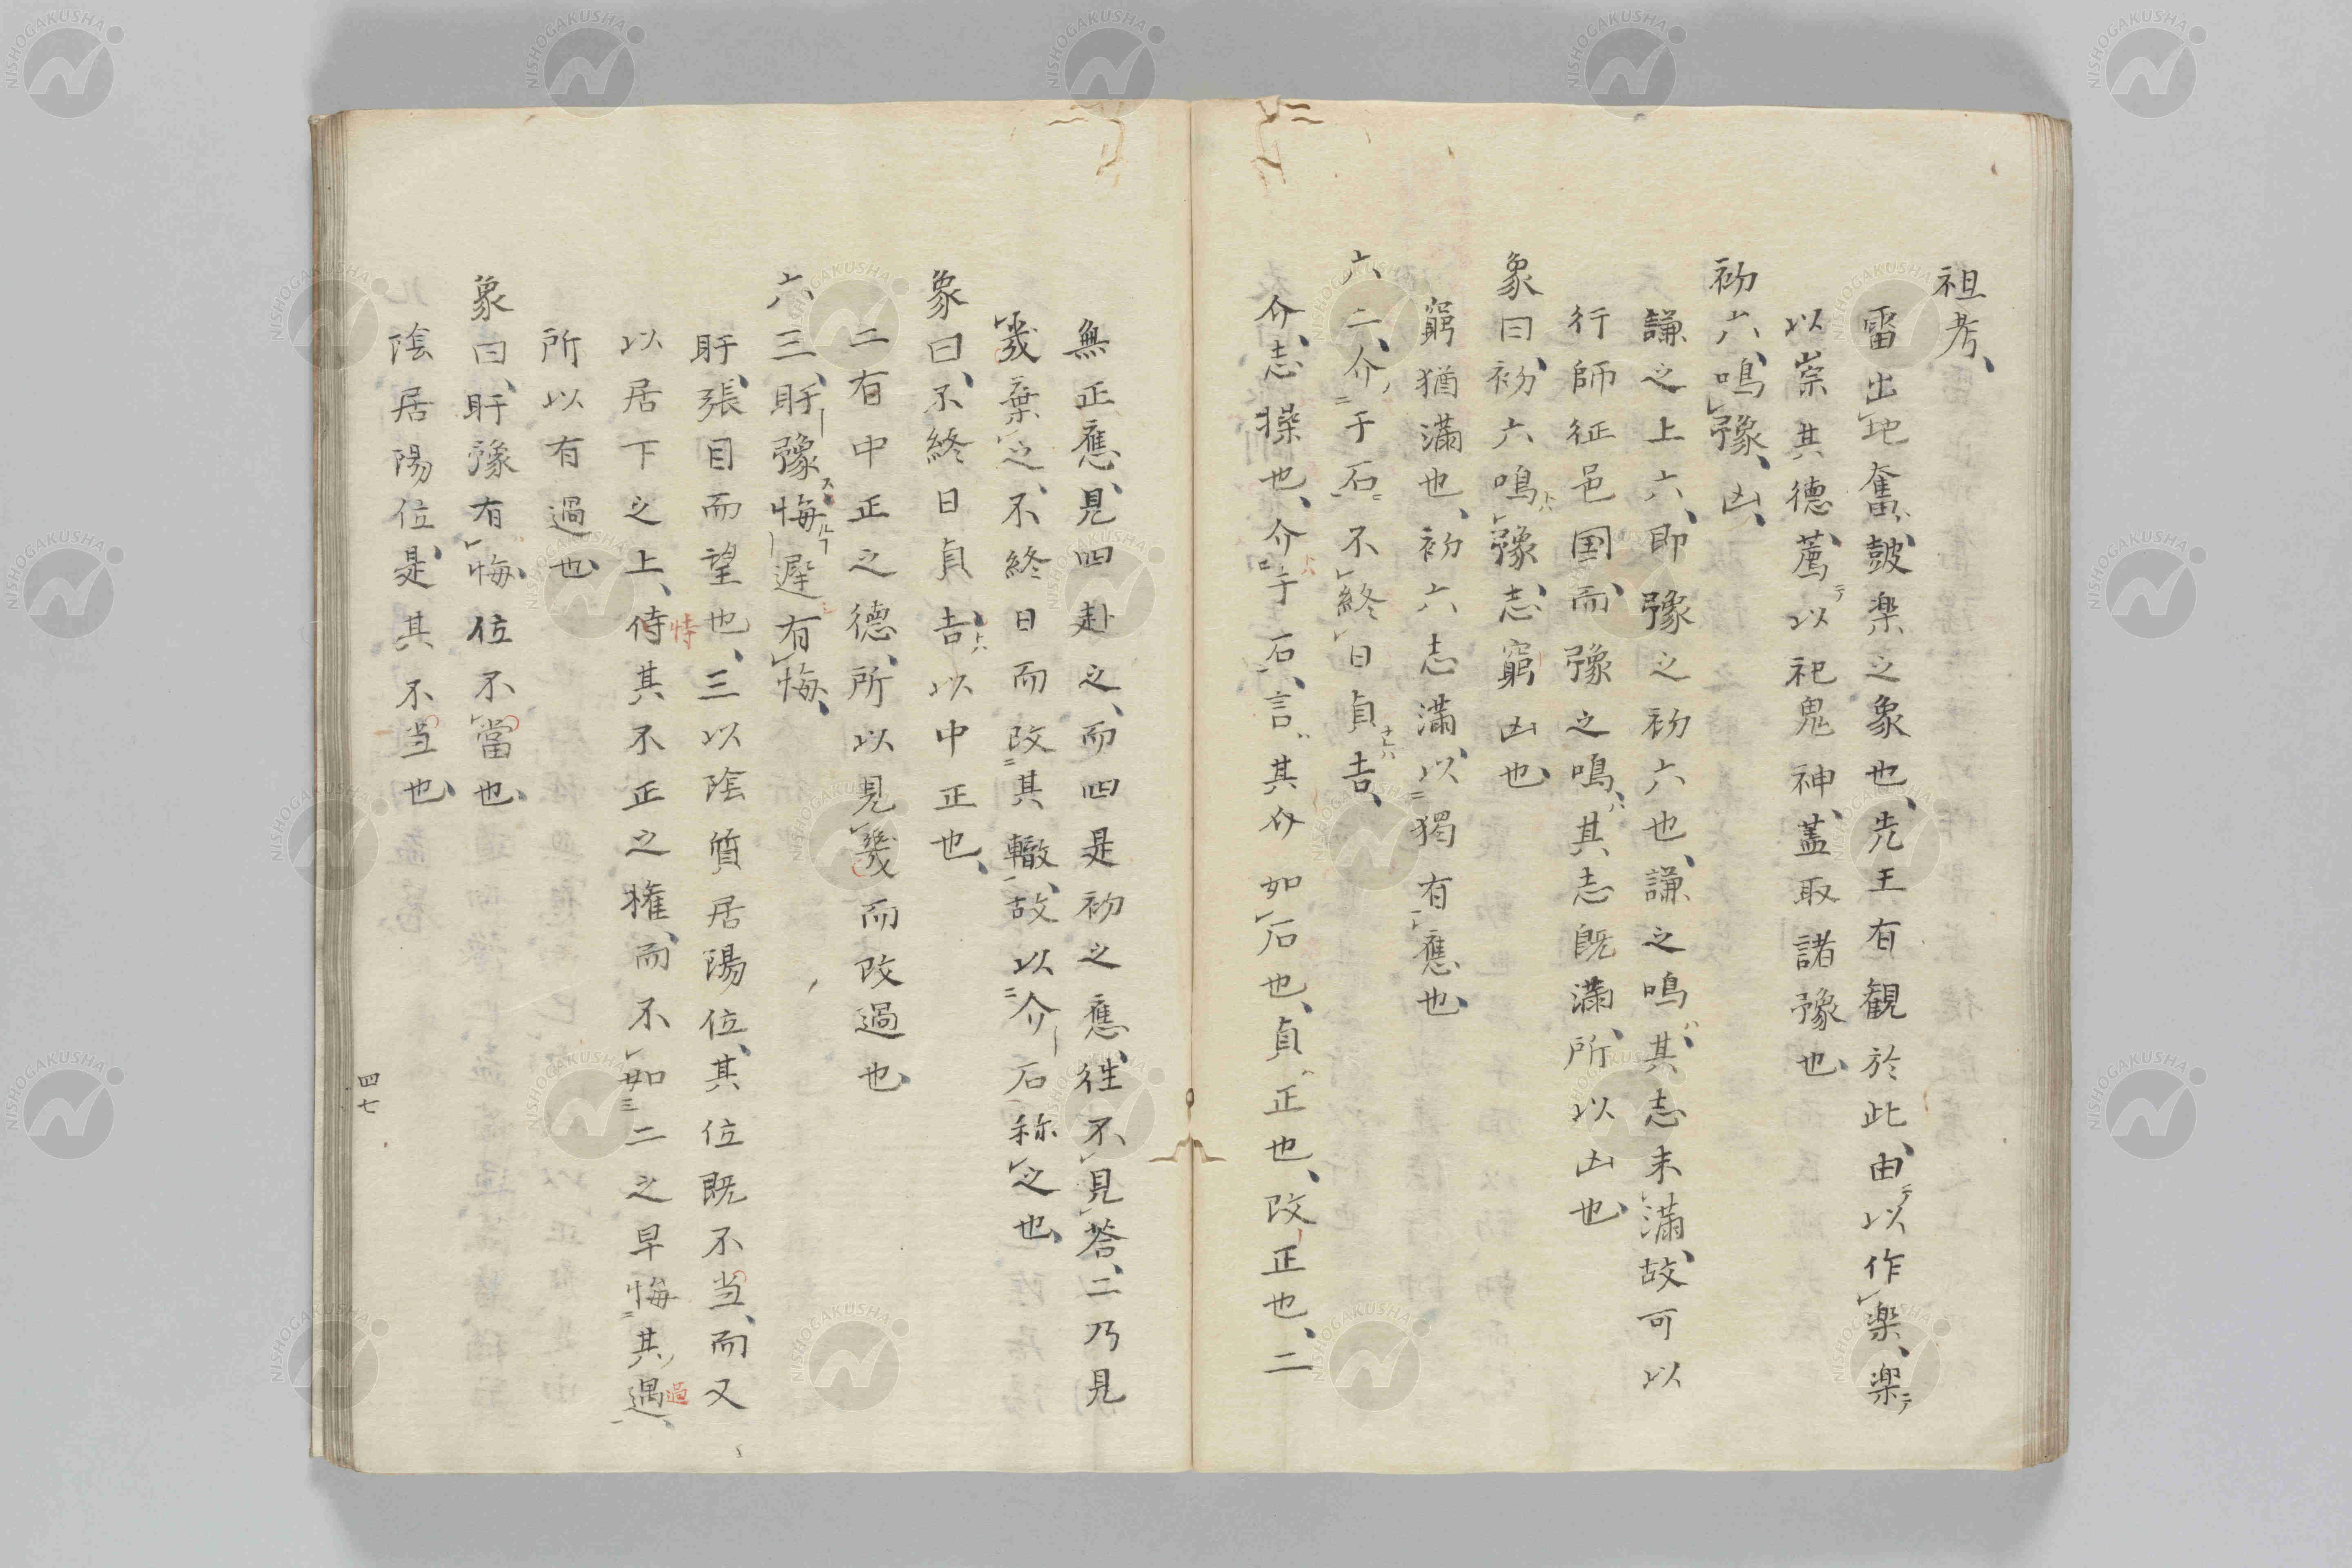 祖考、
雷出地奮、鼓楽之象也、先王有観於此、由テ以作楽、楽テ
以崇其徳、薦テ以祀鬼神、蓋取諸豫也、
初六、鳴豫、凶、
謙之上六、即豫之初六也、謙之鳴ハ、其志未満、故可以
行師征邑国、而豫之鳴ハ、其志既満、所以凶也、
象曰、初六鳴豫、志窮凶也、
窮猶満也、初六志満、以獨有應也、
六二、介于石、不終日、貞吉、
介、志操也、介于石、言其介如石也、貞ハ正也、改正也、二
無正應、見四赴之、而四是初之應、往不見荅、二乃見
幾棄之、不終日而改其轍、故以介石称之也、
象曰、不終日貞吉、以中正也、
二有中正之德、所以見幾而改過也、
六三、盱豫悔、遲有悔、
盱、張目而望也、三以陰質居陽位、其位既不当、而又
以居下之上、侍其不正之権、而不如二之早悔其遇、
恃
過
所以有過也、
象曰、盱豫有悔、位不當也、
陰居陽位、是其不当也、
四七
NISHOGAKUSHA